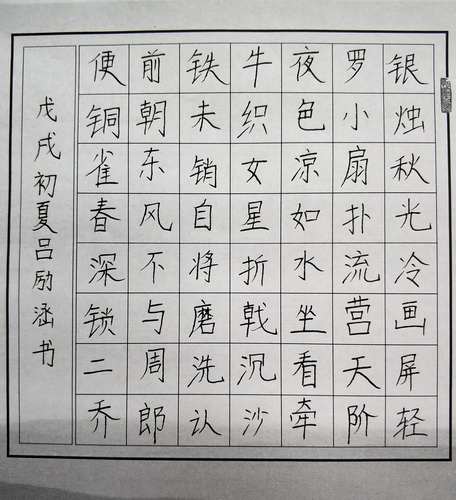 银烛秋光冷画屏轻
罗小扇扑流营天阶
夜色凉如水坐看牵
牛织女星折戟沉沙
铁未销自将磨洗认
前朝东风不与周郎
便铜雀春深锁二乔
戊戌初夏吕励涵书